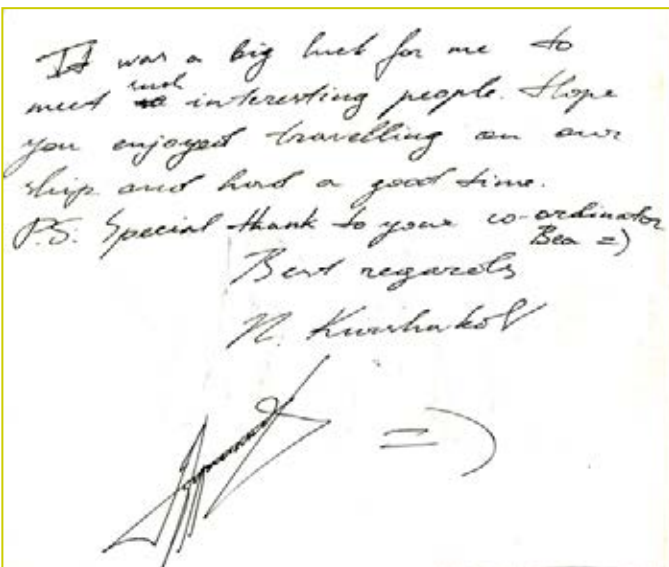 It was a big luck for me to
meet such interesting people. Hope
you enjoyed travelling on our
ship and had a good time.
P.S. Special thank to your co-ordinator
Bea =)
Best regards
N.
=)